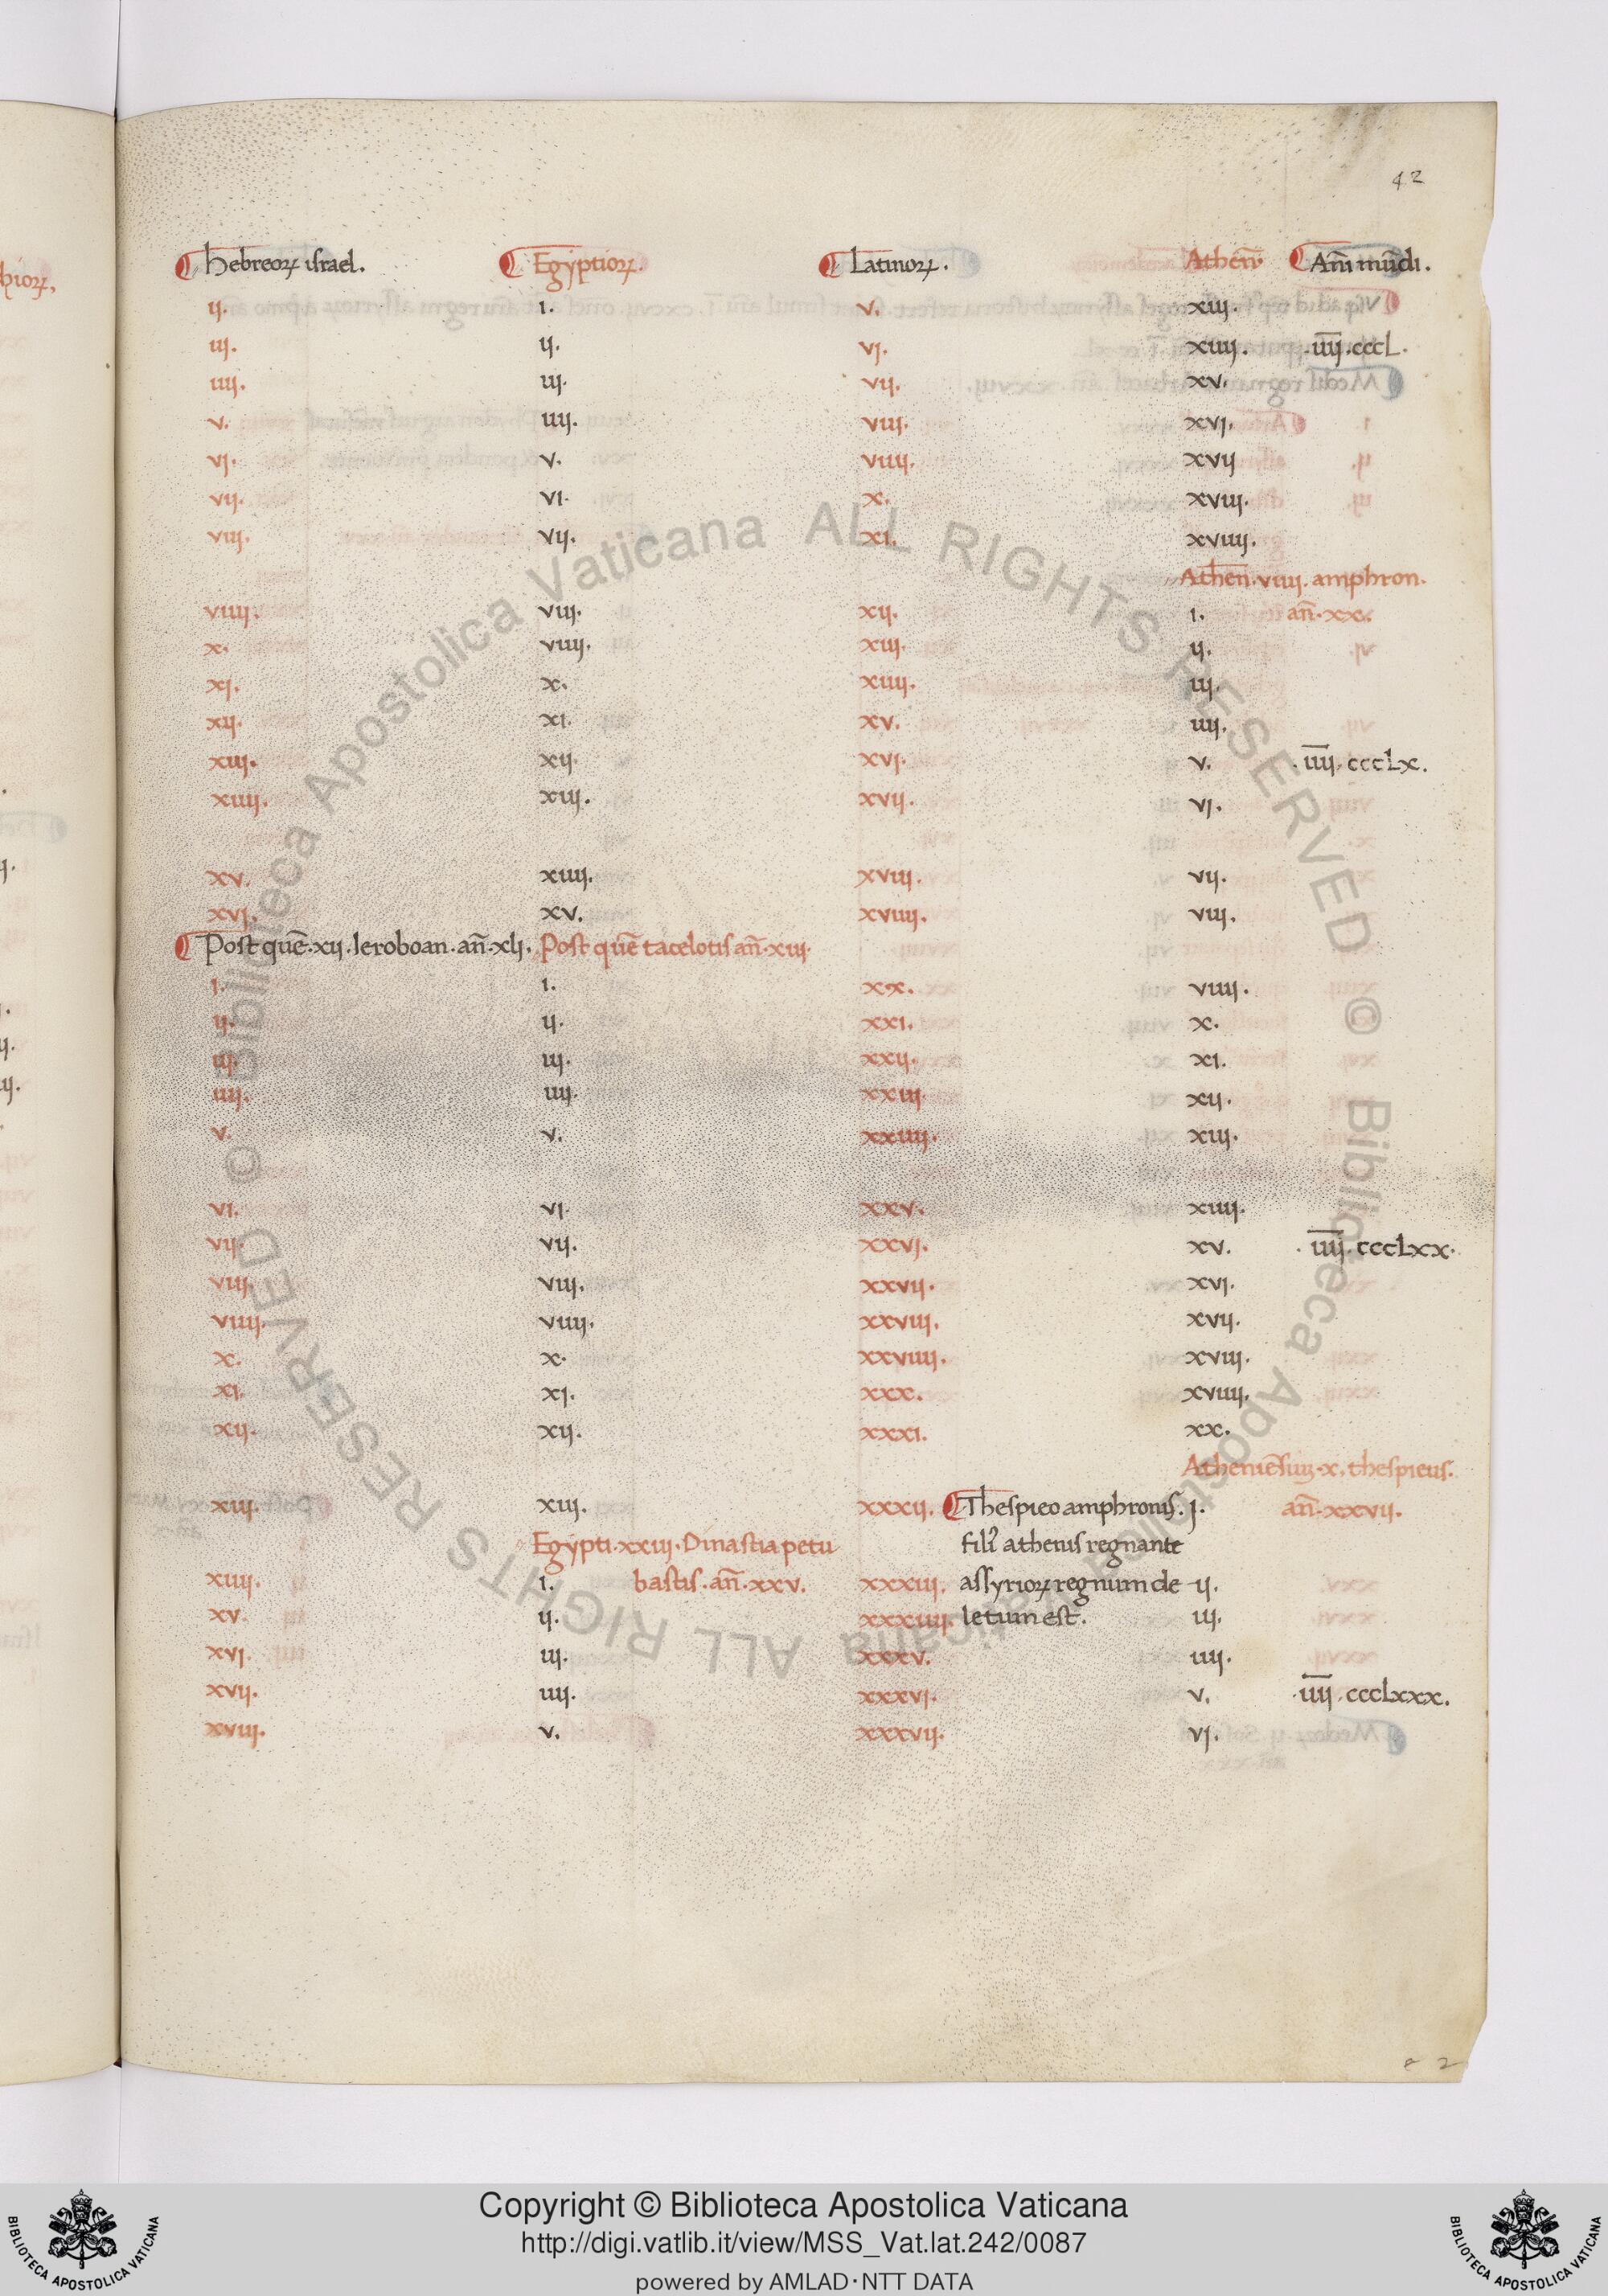 42
hebreoꝝ israel. Egyptioꝝ. Latinoꝝ. Atheñ Añi mũdi.
ij. i. v. xiij.
iij. ij. vj. xiiij. .i̅i̅i̅j̅.cccL.
iiij. iij. vij. xv.
v. iiij. viij. xvj.
vj. v. viiij. xvij
vij. vi. x. xviij.
viij. vij. xi. xviiij.
Athen. viiij. amphron.
viiij. viij. xij. i. añ. xx.
x. viiij. xiij. ij.
xj. x. xiiij. iij.
xij. xi. xv. iiij.
xiij. xij. xvj. v. .i̅i̅i̅j̅.cccLx.
xiiij. xiij. xvij. vj.
xv. xiiij. xviij. vij.
xvj. xv. xviiij. viij.
Post quẽ. xij. Ieroboan. añ. xlj. Post quẽ tacelotis añ. xiij.
i. i. xx. viiij.
ij. ij. xxi. x.
iij. iij. xxij. xi.
iiij. iiij. xxiij. xij.
v. v. xxiiij. xiij.
vi. vj. xxv. xiiij.
vij. vij. xxvj. xv. .i̅i̅i̅j̅.cccLxx.
viij. viij. xxvij. xvj.
viiij. viiij. xxviij. xvij.
x. x. xxviiij. xviij.
xi. xj. xxx. xviiij.
xij. xij. xxxi. xx.
Atheniẽsiuȝ. x. thespieus.
xiij. xiij. xxxij. Thespieo amphronis. j. añ. xxvij.
Egypti. xxiij. Dinastia petu fili athenis regnante
xiiij. i. bastis. añ. xxv. xxxiij. assyrioꝝ regnum de ij.
xv. ij. xxxiiij. letum est. iij.
xvj. iij. xxxv. iiij.
xvij. iiij. xxxvj. v. .i̅i̅i̅j̅.cccLxxx.
xviij. v. xxxvij. vj.
© Biblioteca Apostolica Vaticana ALL RIGHTS RESERVED © Biblioteca Apostolica Vaticana ALL RIGHTS RESERVED
Copyright © Biblioteca Apostolica Vaticana
http://digi.vatlib.it/view/MSS_Vat.lat.242/0087
powered by AMLAD·NTT DATA
BIBLIOTECA APOSTOLICA VATICANA
BIBLIOTECA APOSTOLICA VATICANA